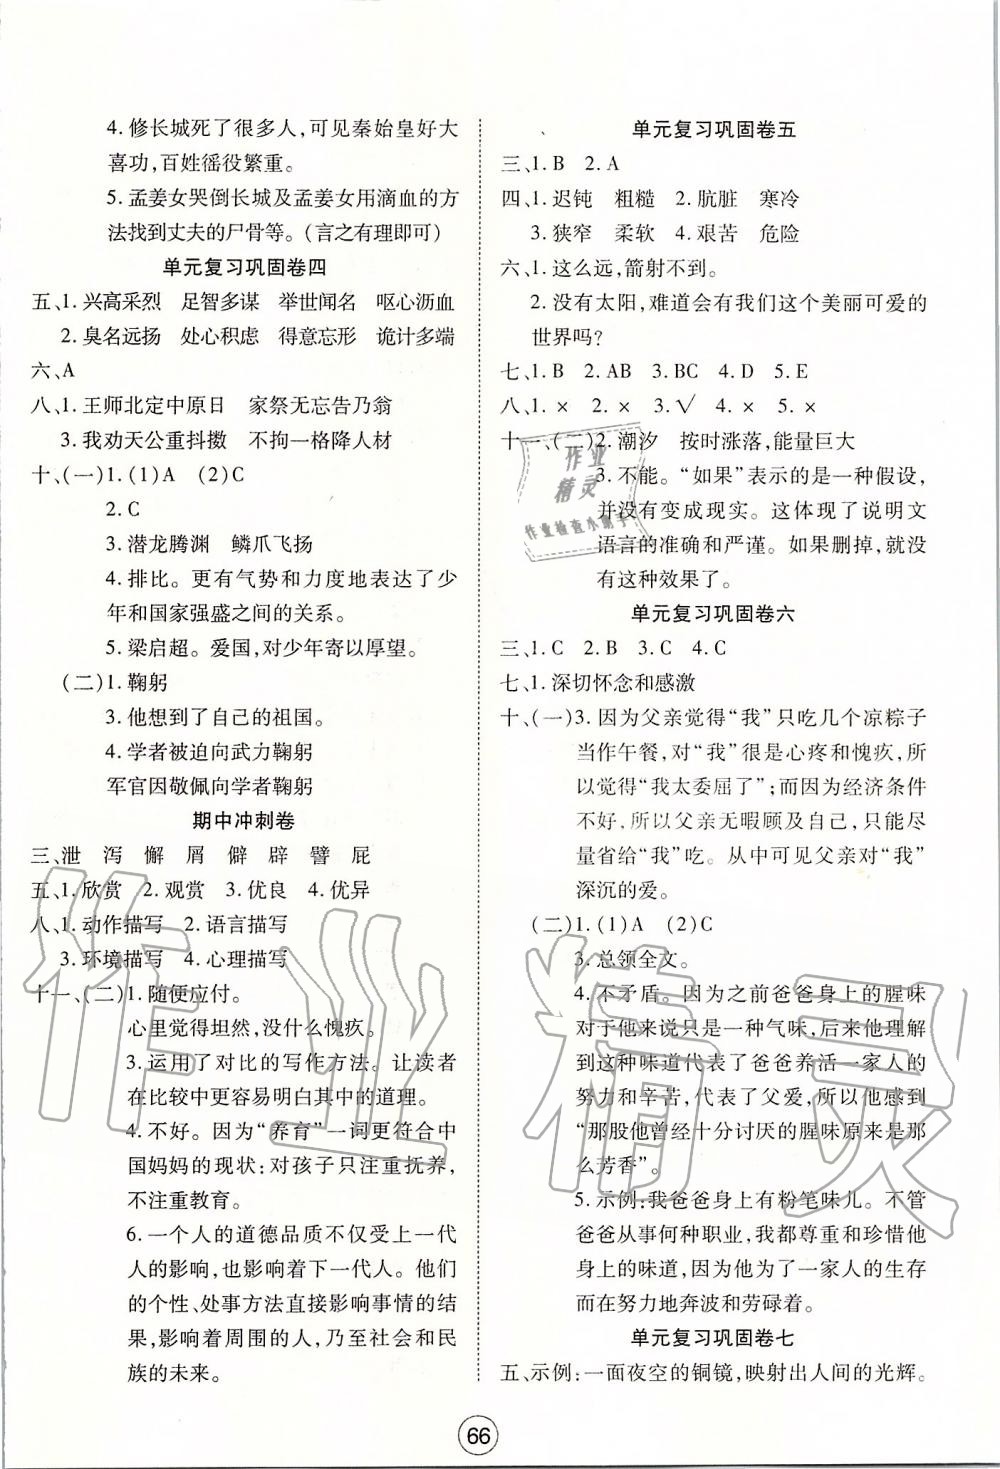 4. 修长城死了很多人,可见秦始皇好大
喜功,百姓徭役繁重。
5. 孟姜女哭倒长城及孟姜女用滴血的方
法找到丈夫的尸骨等。(言之有理即可)
单元复习巩固卷四
五、1. 兴高采烈 足智多谋 举世闻名 呕心沥血
2. 臭名远扬 处心积虑 得意忘形 诡计多端
六、A
八、1. 王师北定中原日 家祭无忘告乃翁
3. 我劝天公重抖擞 不拘一格降人材
十、(一)1. (1)A (2)C
2. C
3. 潜龙腾渊 鳞爪飞扬
4. 排比。更有气势和力度地表达了少
年和国家强盛之间的关系。
5. 梁启超。爱国,对少年寄以厚望。
(二)1. 鞠躬
3. 他想到了自己的祖国。
4. 学者被迫向武力鞠躬
军官因敬佩向学者鞠躬
期中冲刺卷
三、泄 泻 懈 屑 僻 辟 譬 屁
五、1. 欣赏 2. 观赏 3. 优良 4. 优异
八、1. 动作描写 2. 语言描写
3. 环境描写 4. 心理描写
十一、(二)1. 随便应付。
心里觉得坦然,没什么愧疚。
3. 运用了对比的写作方法。让读者
在比较中更容易明白其中的道理。
4. 不好。因为“养育”一词更符合中
国妈妈的现状:对孩子只注重抚养,
不注重教育。
6. 一个人的道德品质不仅受上一代
人的影响,也影响着下一代人。他们
的个性、处事方法直接影响事情的结
果,影响着周围的人,乃至社会和民
族的未来。
单元复习巩固卷五
三、1. B 2. A
四、1. 迟钝 粗糙 2. 肮脏 寒冷
3. 狭窄 柔软 4. 艰苦 危险
六、1. 这么远,箭射不到。
2. 没有太阳,难道会有我们这个美丽可爱的
世界吗?
七、1. B 2. AB 3. BC 4. D 5. E
八、1. × 2. × 3. √ 4. × 5. ×
十一、(二)2. 潮汐 按时涨落,能量巨大
3. 不能。“如果”表示的是一种假设,
并没有变成现实。这体现了说明文
语言的准确和严谨。如果删掉,就没
有这种效果了。
单元复习巩固卷六
三、1. C 2. B 3. C 4. C
七、1. 深切怀念和感激
十、(一)3. 因为父亲觉得“我”只吃几个凉粽子
当作午餐,对“我”很是心疼和愧疚,所
以觉得“我太委屈了”;而因为经济条件
不好,所以父亲无暇顾及自己,只能尽
量省给“我”吃。从中可见父亲对“我”
深沉的爱。
(二)1. (1)A (2)C
3. 总领全文。
4. 不矛盾。因为之前爸爸身上的腥味
对于他来说只是一种气味,当他理解
到这种味道代表了爸爸养活一家人的
努力和辛苦,代表了父爱,所以他觉得
“那股他曾经十分讨厌的腥味原来是那
么芳香”。
5. 示例:我爸爸身上有粉笔味儿。不管
爸爸从事何种职业,我都尊重和珍惜他
身上的味道,因为他为了一家人的生存
而在努力地奔波和劳碌着。
单元复习巩固卷七
五、示例:一面夜空的铜镜,映射出人间的光辉。
作业
精灵
作业检查小助手
作业精灵
66